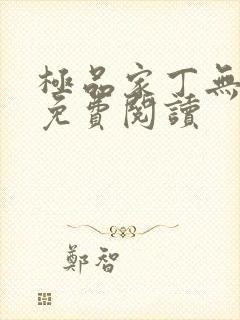 極品家丁無
免費閱讀
鄭智